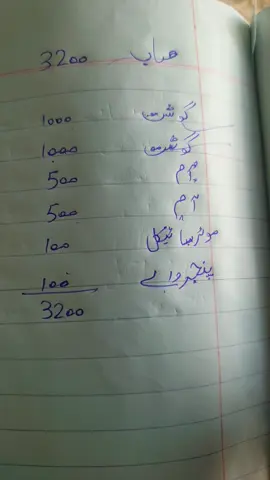 حساب 3200
گوشت 1000
گوشت 1000
آم 500
آم 500
موٹرسائیکل 100
پنچر والے 100
3200